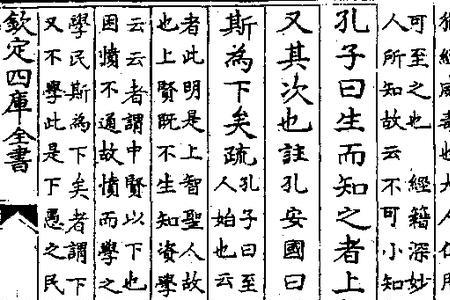 可至之也　經籍深妙
人所知故云不可小知
孔子曰生而知之者上
又其次也註孔安國曰
斯為下矣疏孔子曰至
人始也云
者此明是上智聖人故
也上賢既不生知資學
云云者謂中賢以下也
困憤不通故憤而學之
學民斯為下矣者謂下
又不學此是下愚之民
欽定四庫全書